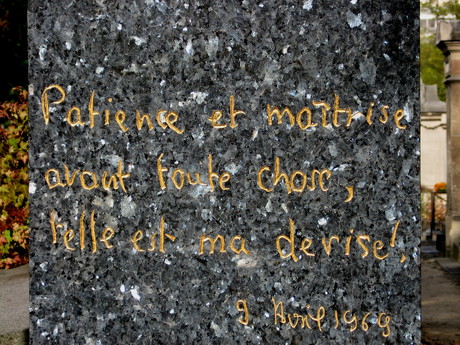 Patience et maîtrise
avant toute chose,
telle est ma devise!,
9 Avril 1969